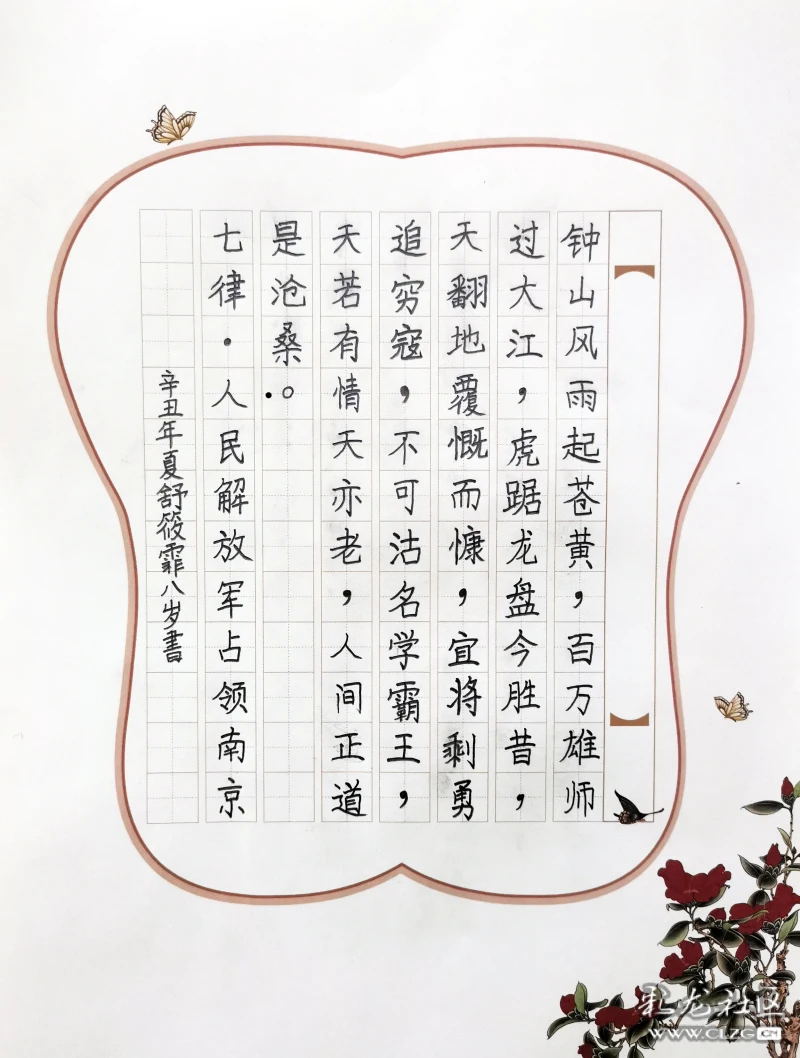 钟山风雨起苍黄，百万雄师
过大江，虎踞龙盘今胜昔，
天翻地覆慨而慷，宜将剩勇
追穷寇，不可沽名学霸王，
天若有情天亦老，人间正道
是沧桑。
七律·人民解放军占领南京
辛丑年夏舒筱霏八岁書
彩龙社区
WWW.CLZG.CN